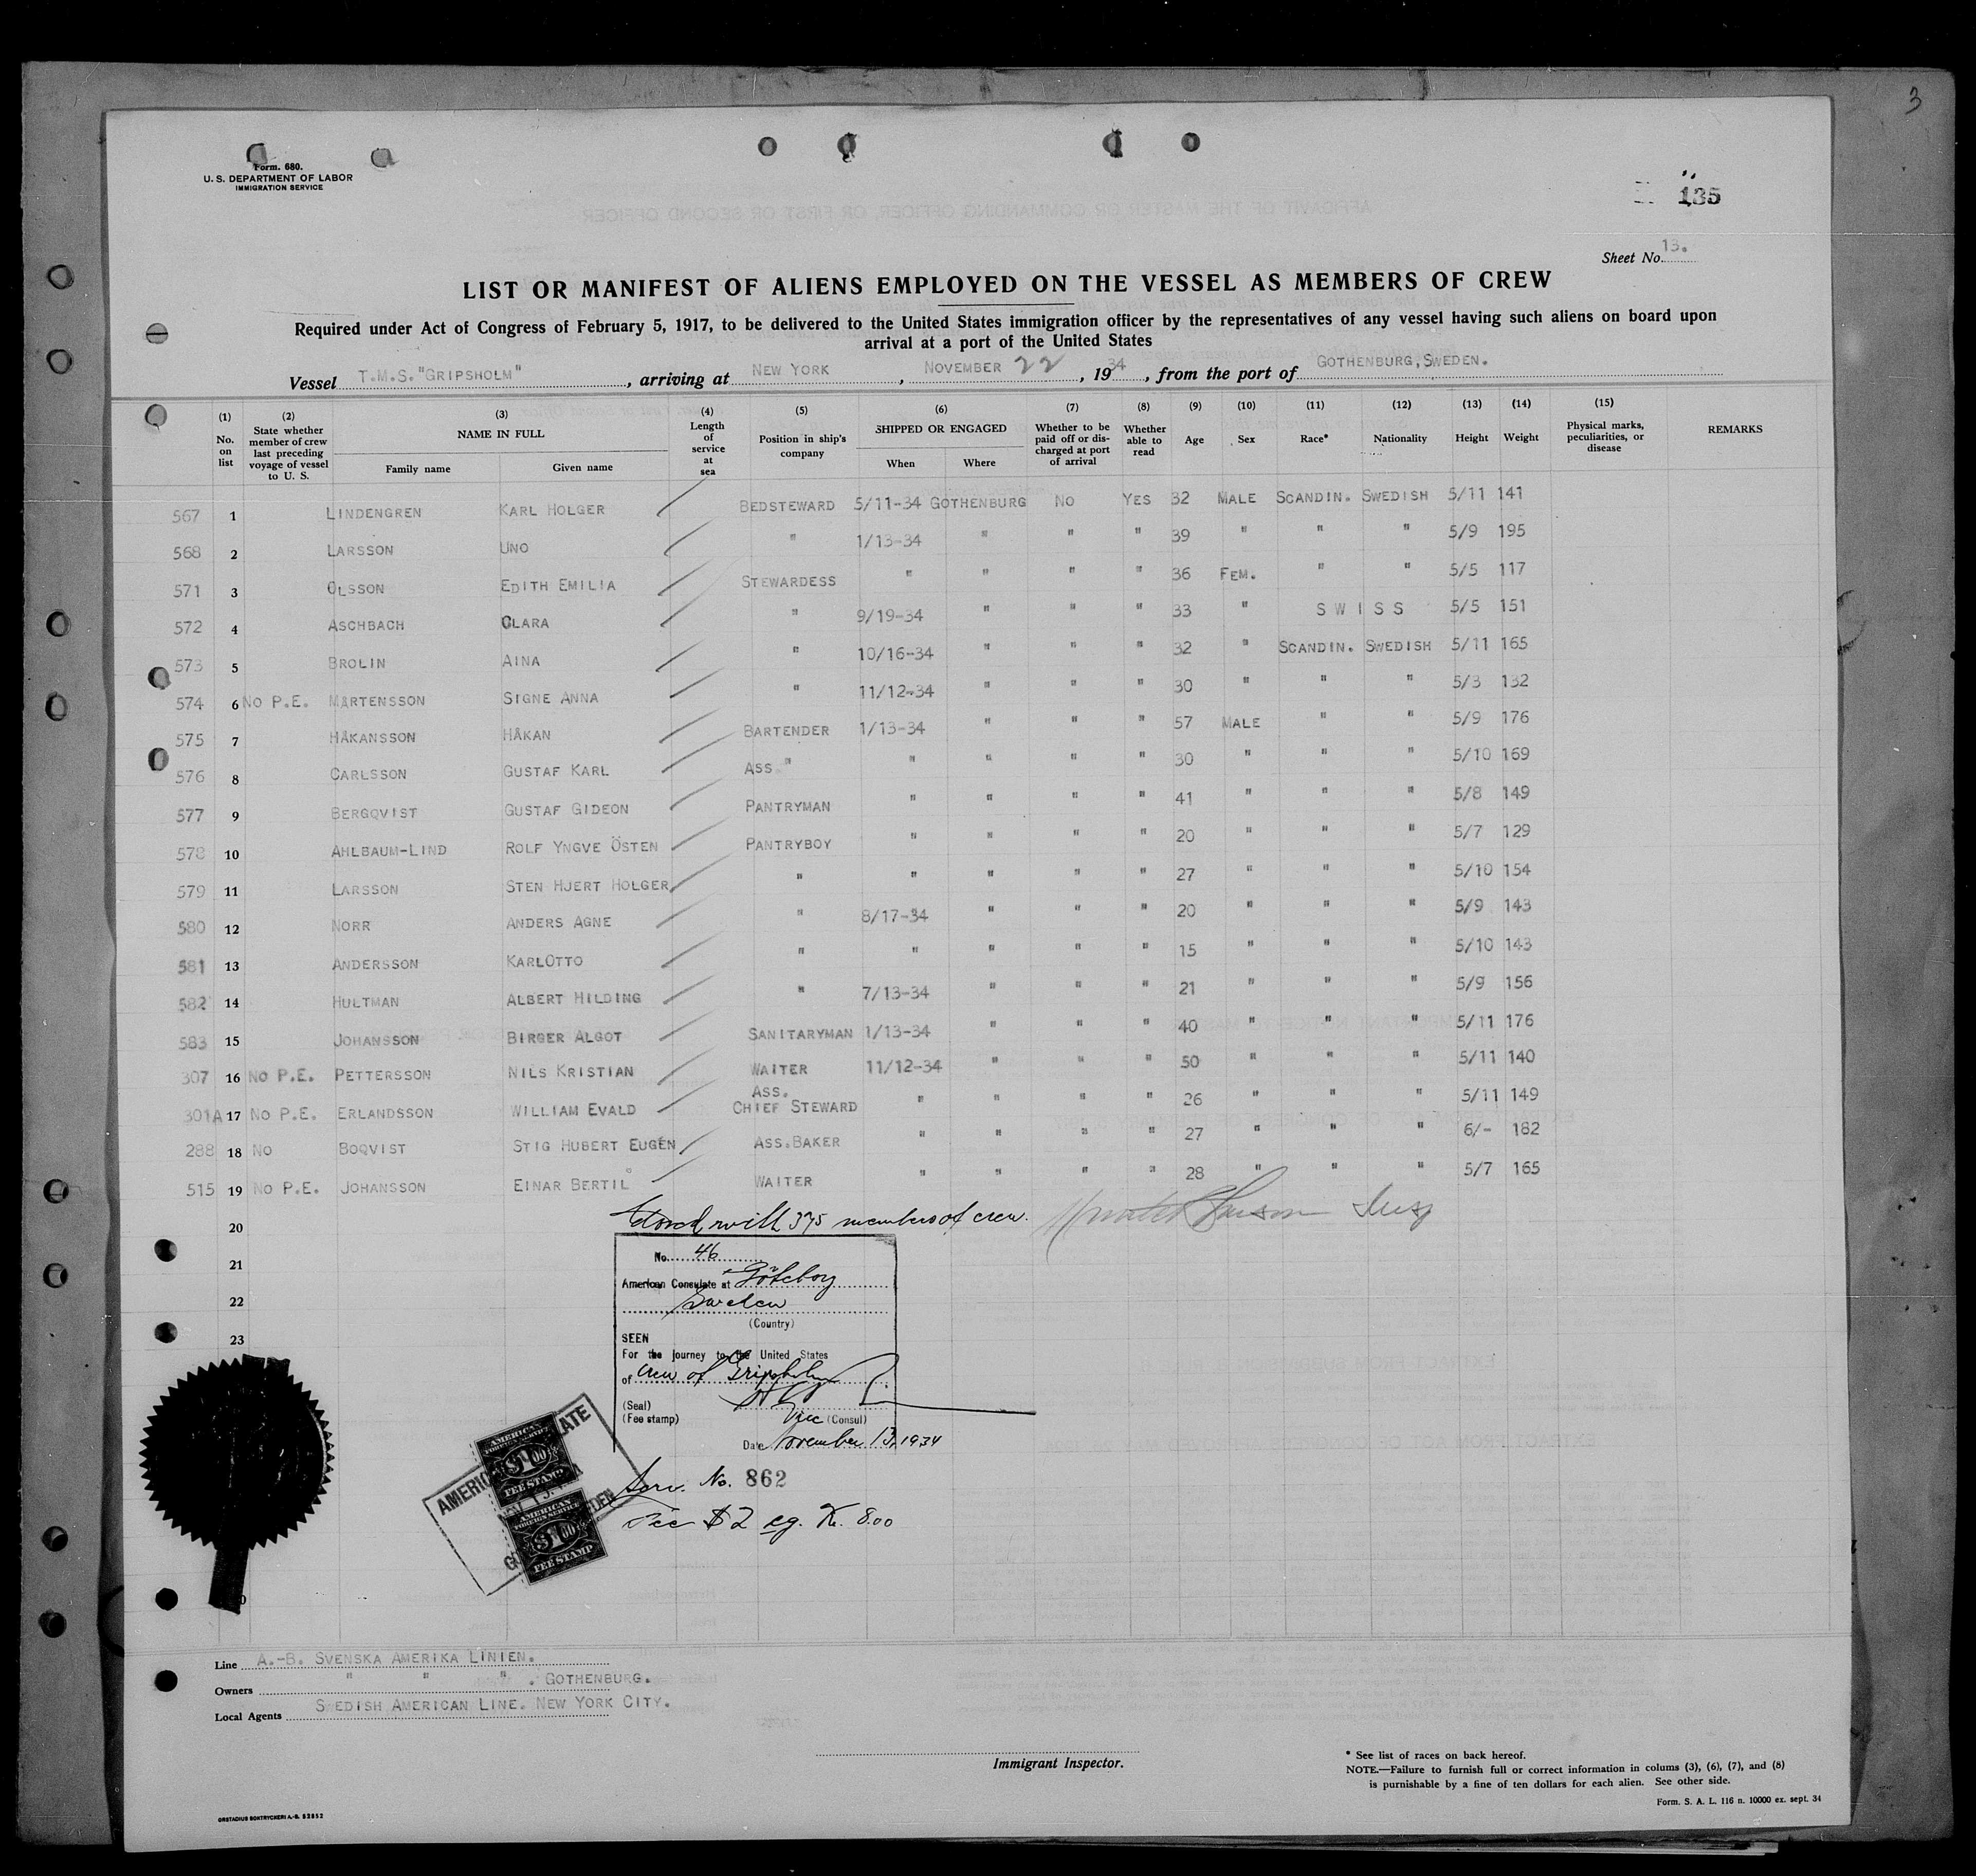 3
Form. 680.
U. S. DEPARTMENT OF LABOR
IMMIGRATION SERVICE
135
Sheet No. 13.
LIST OR MANIFEST OF ALIENS EMPLOYED ON THE VESSEL AS MEMBERS OF CREW
Required under Act of Congress of February 5, 1917, to be delivered to the United States immigration officer by the representatives of any vessel having such aliens on board upon
arrival at a port of the United States
Vessel T.M.S."GRIPSHOLM", arriving at NEW YORK, NOVEMBER 22, 1934, from the port of GOTHENBURG, SWEDEN.
(1) No. on list (2) State whether member of crew last preceding voyage of vessel to U. S. (3) NAME IN FULL Family name Given name (4) Length of service at sea (5) Position in ship's company (6) SHIPPED OR ENGAGED When Where (7) Whether to be paid off or discharged at port of arrival (8) Whether able to read (9) Age (10) Sex (11) Race* (12) Nationality (13) Height (14) Weight (15) Physical marks, peculiarities, or disease REMARKS
567 1 LINDENGREN KARL HOLGER BEDSTEWARD 5/11-34 GOTHENBURG NO YES 32 MALE SCANDIN. SWEDISH 5/11 141
568 2 LARSSON UNO " 1/13-34 " " " 39 " " " 5/9 195
571 3 OLSSON EDITH EMILIA STEWARDESS " " " " 36 FEM. " " 5/5 117
572 4 ASCHBACH CLARA " 9/19-34 " " " 33 " SWISS 5/5 151
573 5 BROLIN AINA " 10/16-34 " " " 32 " SCANDIN. SWEDISH 5/11 165
574 6 NO P.E. MÅRTENSSON SIGNE ANNA " 11/12-34 " " " 30 " " " 5/3 132
575 7 HÅKANSSON HÅKAN BARTENDER 1/13-34 " " " 57 MALE " " 5/9 176
576 8 CARLSSON GUSTAF KARL ASS " " " " " 30 " " " 5/10 169
577 9 BERGQVIST GUSTAF GIDEON PANTRYMAN " " " " 41 " " " 5/8 149
578 10 AHLBAUM-LIND ROLF YNGVE ÖSTEN PANTRYBOY " " " " 20 " " " 5/7 129
579 11 LARSSON STEN HJERT HOLGER " " " " " 27 " " " 5/10 154
580 12 NORR ANDERS AGNE " 8/17-34 " " " 20 " " " 5/9 143
581 13 ANDERSSON KARLOTTO " " " " " 15 " " " 5/10 143
582 14 HULTMAN ALBERT HILDING " 7/13-34 " " " 21 " " " 5/9 156
583 15 JOHANSSON BIRGER ALGOT SANITARYMAN 1/13-34 " " " 40 " " " 5/11 176
307 16 NO P.E. PETTERSSON NILS KRISTIAN WAITER 11/12-34 " " " 50 " " " 5/11 140
301A 17 NO P.E. ERLANDSSON WILLIAM EVALD ASS. CHIEF STEWARD " " " " 26 " " " 5/11 149
288 18 NO BOQVIST STIG HUBERT EUGÉN ASS.BAKER " " " " 27 " " " 6/- 182
515 19 NO P.E. JOHANSSON EINAR BERTIL WAITER " " " " 28 " " " 5/7 165
20 Closed with 375 members of crew.
21
22
23
No. 46
American Consulate at Göteborg
Sweden
(Country)
SEEN
For the journey to the United States
of crew of Gripsholm
(Seal)
(Fee stamp) Vice (Consul)
Date November 13, 1934
Serv. No. 862
Fee $2 eq. Kr. 8.00
AMERICAN FOREIGN SERVICE $1.00 FEE STAMP
AMERICAN FOREIGN SERVICE $1.00 FEE STAMP
Line A.-B. SVENSKA AMERIKA LINIEN.
Owners " " " . GOTHENBURG.
Local Agents SWEDISH AMERICAN LINE. NEW YORK CITY.
Immigrant Inspector.
* See list of races on back hereof.
NOTE.—Failure to furnish full or correct information in colums (3), (6), (7), and (8)
is punishable by a fine of ten dollars for each alien. See other side.
Form. S. A. L. 116 n. 10000 ex. sept. 34
ORSTADIUS BOKTRYCKERI A.-B. 52852